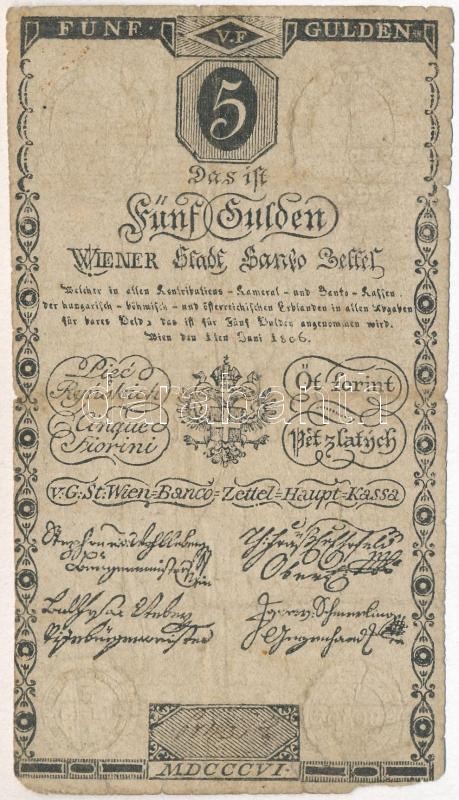 FÜNF V.F GULDEN
5
Das ist
Fünf Gulden
WIENER Stadt Banco Zettel
Welcher in allen Kontributions-Kameral-und Banko-Kassen
der hungarisch-böhmisch-und österreichischen Erblanden in allen Abgaben
für bares Geld, das ist für Fünf Gulden angenommen wird.
Wien den 1ten Juni 1806.
Pięć Ryńskich
Öt forint
Cinque Fiorini
Pět zlatých
darabanth
v: G: St: Wien=Banco=Zettel=Haupt=Kassa
MDCCCVI.